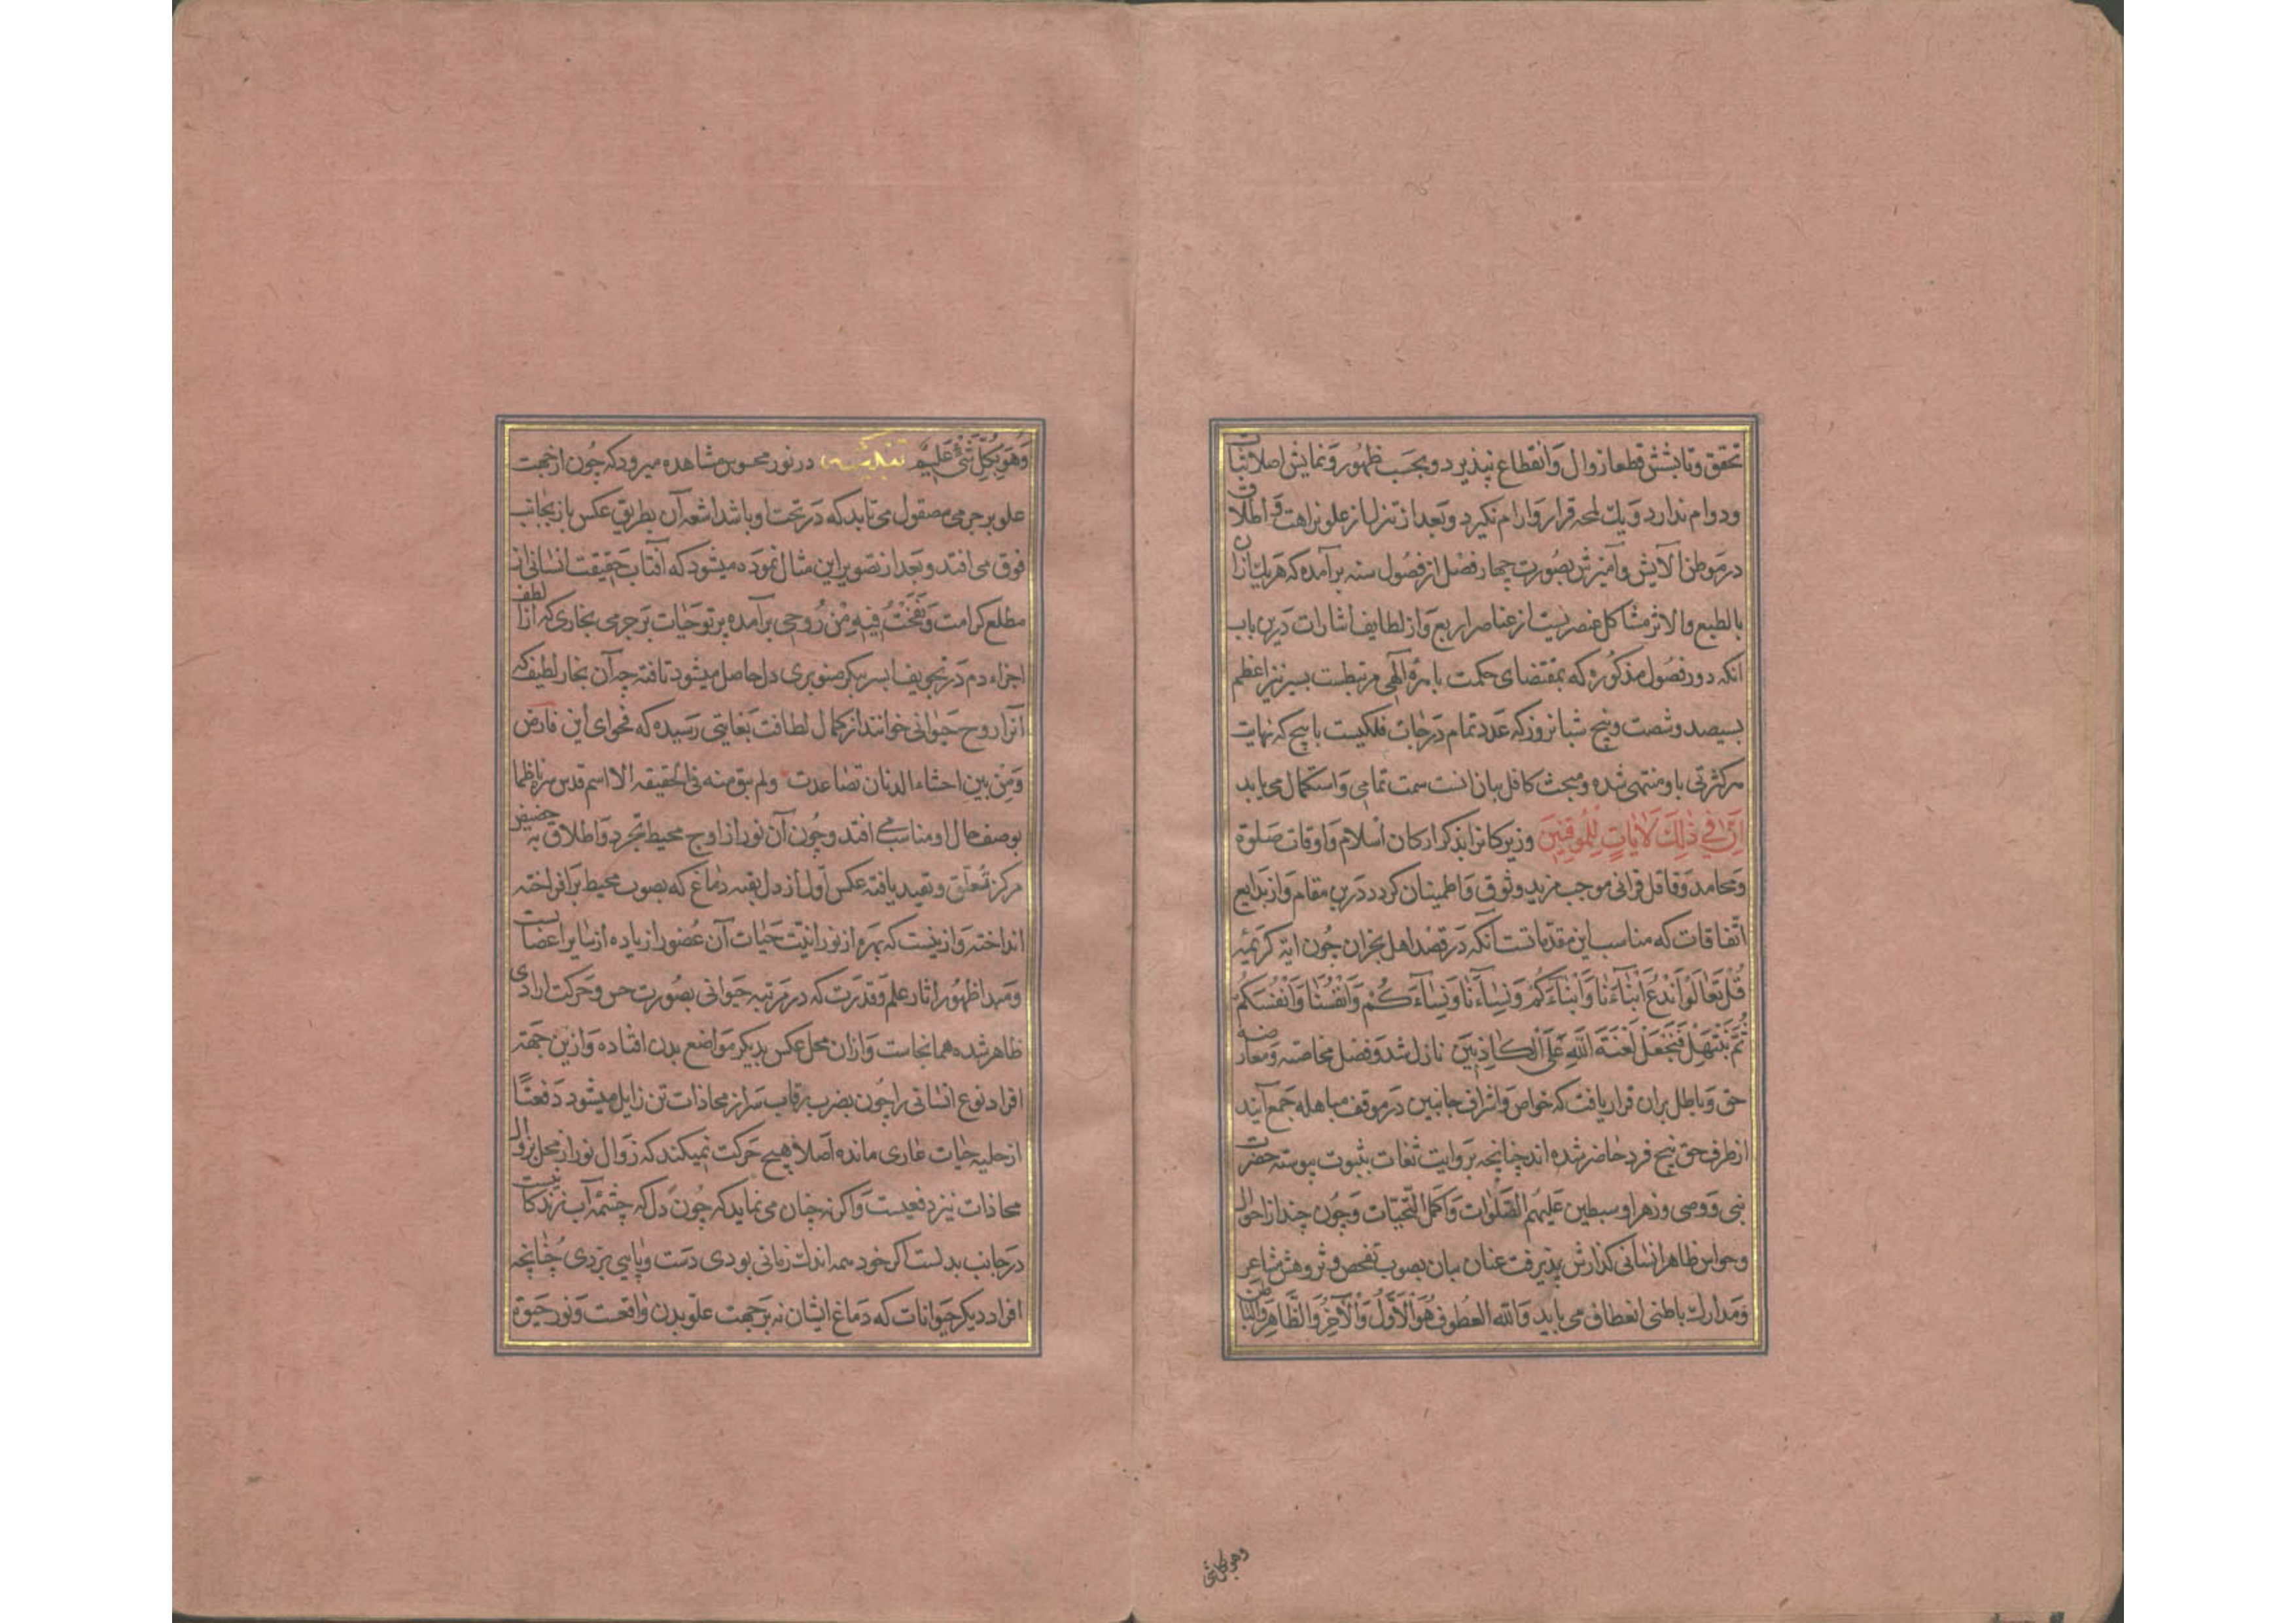 تحقق و تابشش قطعا زوال وانقطاع نپذیرد و بحسب ظهور و نمایش اصلا ثبات
و دوام ندارد و یك لمحه قرار و ارام نكیرد و بعد از تنزل از علو نزاهت و اطلاق
در موطن آلایش و آمیزش بصورت چهار فصل از فصول سنه برآمده كه هریك ازان
بالطبع والاثر مشاكل عنصریست از عناصر اربع و از لطایف اشارات درین باب
انكه دور فصول مذكوره كه بمقتضای حكمت باهره الٓهی مرتبطست بسیر نیر اعظم
بسیصد و شصت و پنج شبانروز كه عدد تمام درجات فلكیست با پنج كه نهایت
هر كثرتی باو منتهی شده و مبحث كافل بیان انست سمت تمامی و استكمال می یابد
اِنَّ فِی ذٰلِكَ لَاٰیَاتٍ لِلْمُوقِنِینَ و زیركانرا بذكر اركان اسلام و اوقات صلوة
و محامد وفاقل قرانی موجب مزید وثوق و اطمینان كردد درین مقام و از بدایع
اتفاقات كه مناسب این مقدماتست آنكه در قصد اهل نجران چون ایه كریمه
قُلْ تَعٰالَوْا نَدْعُ اَبْنٰآءَنٰا وَاَبْنٰآءَكُمْ وَنِسٰآءَنٰا وَنِسٰآءَكُمْ وَاَنْفُسَنٰا وَاَنْفُسَكُمْ
ثُمَّ نَبْتَهِلْ فَنَجْعَلْ لَعْنَةَ اللّٰهِ عَلَی الْكٰاذِبِینَ نازل شد و فصل مخاصمه و معارضه
حق و باطل بران قرار یافت كه خواص و اشراف جانبین در موقف مباهله جمع آیند
از طرف حق پنج فرد حاضر شده اند چنانچه بروایت ثقات بثبوت پیوسته حضرت
نبی و وصی و زهرا و سبطین علیهم الصلوات و اكمل التحیّات و چون چند از احوال
و حواس ظاهر انسانی كذارش پذیرفت عنان بیان بصوب تفحص و پژوهش مشاعر
و مدارك باطنی انعطاف می یابد والله العطوف هُوَ الْاَوَّلُ وَالْاٰخِرُ وَالظّٰاهِرُ وَالْبٰاطِنُ
وهو بكل شئ
وَهُوَ بِكُلِّ شَیْءٍ عَلِیمٌ در نور محسوس مشاهده میرود كه چون از جهت
علو بر جرمی مصقول می تابد كه در تحت او باشد اشعه آن بطریق عكس باز بجانب
فوق می افتد و بعد از تصویر این مثال نموده میشود كه آفتاب حقیقت انسانی از
مطلع كرامت وَنَفَخْتُ فِیهِ مِنْ رُوحِی برآمده پرتو حیات بر جرمی بخاری كه از الطف
اجزاء دم در تجویف ایسر پیكر صنوبری دل حاصل میشود تافته چه آن بخار لطیف كه
آنرا روح حیوانی خوانند از كمال لطافت بغایتی رسیده كه فحوای ابن فارض
وَمِنْ بین احشاء الدنان تصاعدت ولم یبق منه فی الحقیقه الا اسم قدس سره ناظما
بوصف حال او مناسب می افتد و چون آن نور از اوج محیط تجرد و اطلاق به حضیض
مركز تعلق و تقید یافته عكس اول از دل بقبه دماغ كه بصوب محیط برافراخته
انداخته و ازینست كه بهره از نورانیت حیات آن عضو را زیاده از سایر اعضاست
و مبدا ظهور اثار علم و قدرت كه در مرتبه حیوانی بصورت حس و حركت ارادی
ظاهر شده همانجاست و ازان محل عكس بدیكر مواضع بدن افتاده و ازین جهة
افراد نوع انسانی را چون بضرب رقاب سر از محاذات تن زایل میشود دفعتًا
از حلیه حیات عاری مانده اصلا هیچ حركت نمیكند كه زوال نور از محل بزوال
محاذات نیز دفعیست و اكر نه چنان می نماید كه چون دل كه چشمه آب زندكانیست
در جانب بدنست اكر خود همه اندك زمانی بودی دست و پایی بزدی چنانچه
افراد دیكر حیوانات كه دماغ ایشان نه بر جهت علو بدن واقعست و نور حیوة